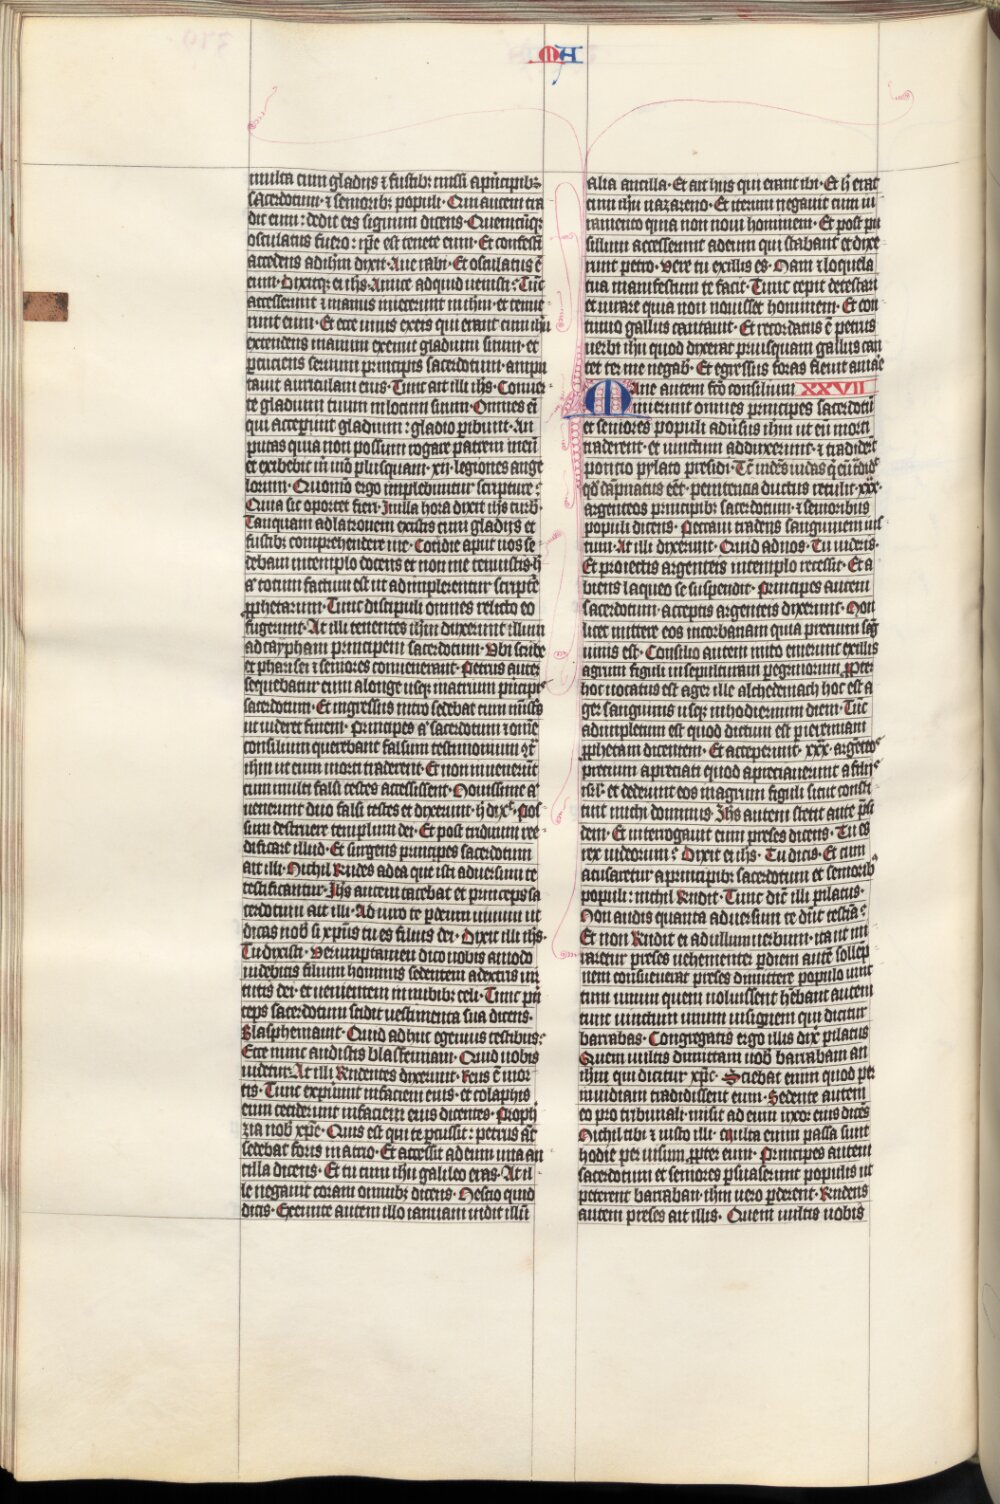 MA
multa cum gladiis ⁊ fustibꝫ missi a pͥncipibꝫ
sacerdotum · ⁊ seniorib; populi · Cum autem tra
dit eum : dedit eis signum dicens · Quemcūqꝫ
osculatus fuero : ip̄e est tenete eum · Et confestī
accedens ad ihm̄ dixit · Aue rabi · Et osculatus ē
eum · Dixitqꝫ ei ihs̄ · Amice ad quid uenisti : Tūc
accesserunt ⁊ manus iniecerunt in ihm̄ · et tenue
runt eum · Et ecce unus ex eis qui erant cum ihu
extendens manum exemit gladium suum · et
percuciens seruum principis sacerdotum · ampu
tauit auriculam eius · Tunc ait illi ihs̄ · Conuer
te gladium tuum in locum suum · Omnes eī
qui acceperint gladium : gladio peribunt · An
putas quia non possum rogare patrem meū
et exibebit m̄ m̊o plusquam · xii · legiones ange
lorum · Quomō ergo implebuntur scripture :
Quia sic oportet fieri · In illa hora dixit ihs̄ turb̄ ·
Tanquam ad latronem existis cum gladiis et
fustibꝫ comprehendere me · Cotidie aput uos se
debam in templo docens et non me tenuistis · h̄
aͭ totum factum est ut adimplerentur scriptē
ꝓphetarum · Tunc discipuli omnes relicto eo
fugerunt · At illi tenentes ihm̄ duxerunt illum
ad caypham principem sacerdotum · Vbi scribe
et pharisei ⁊ seniores conuenerant · Petrus autē
sequebatur eum a longe usqꝫ in atrium pͥncipis
sacerdotum · Et ingressus intro sedebat cum mīsͭs
ut uideret finem · Principes aͭ sacerdotum ⁊ om̄e
consilium querebant falsum testimonium ɔͭ
ihm̄ ut eum morti traderent · Et non inuenerūt
cum multi falsi testes accessissent · Nouissime aͭ
uenerunt duo falsi testes et dixerunt · h̄ dix͛ · Pos
sum destruere templum dei · Et post triduum ree
dificare illud · Et surgens princeps sacerdotum
ait illi · Nichil Rn̄des ad ea que isti aduersum te
testificantur · Ihs̄ autem tacebat et princeps sa
cerdotum ait illi · Adiuro te ꝑ deum uiuum ut
dicas nob̄ si xp̄us tu es filius dei · Dixit illi ihs̄ ·
Tu dixisti · Verumptamen dico uobis amodo
uidebitis filium hominis sedentem a dextris uir
tutis dei · et uenientem in nubibꝫ celi · Tunc pͥn
ceps sacerdotum scidit uestimenta sua dicens ·
Blasphemauit · Quid adhuc egemus testibus :
Ecce nunc audistis blasfemiam · Quid uobis
uidetur · At illi Rn̄dentes dixerunt · Reus ē mor
tis · Tunc expuerunt in faciem eius · et colaphis
eum ceciderunt in faciem eius dicentes · Prophe
tiza nob̄ xp̄e · Quis est qui te ꝑcussit : petrus aͭ
sedebat foris in atrio · Et accessit ad eum una an
cilla dicens · Et tu cum ihu galileo eras · At il
le negauit coram omnibꝫ dicens · Nescio quid
dicis · Exeunte autem illo ianuam uidit illū
alia ancilla · Et ait hiis qui erant ibi · Et h̄ erat
cum ihu nazareno · Et iterum negauit cum iu
ramento quia non noui hominem · Et post pu
sillum accesserunt ad eum qui stabant et dixe
runt petro · Vere tu ex illis es · Nam ⁊ loquela
tua manifestum te facit · Tunc cepit detestari
et iurare quia non nouisset hominem · Et con
tinuo gallus cantauit · Et recordatus ē petrus
uerbi ihu quod dixerat priusquam gallus can
tet ter me negab̄ · Et egressus foras fleuit amare
Mane autem fc̄o consilium XXVII
inierunt omnes principes sacerdotū
et seniores populi aduersus ihm̄ ut eū morti
traderent · et uinctum adduxerunt · ⁊ tradider̄t
poncio pylato presidi · Tc̄ uidēs iudas q̄ eū tͣdid͛
qd̄ dāpnatus eēt · penitencia ductus retulit · xxx ·
argenteos principibꝫ sacerdotum · ⁊ senioribus
populi dicens · Peccaui tradens sanguinem ius
tum · At illi dixerunt · Quid ad nos · Tu uideris ·
Et proiectis argenteis in templo recessit · Et a
biens laqueo se suspendit · Principes autem
sacerdotum · acceptis argenteis dixerunt · Non
licet mittere eos in corbanam quia precium sāg
uinis est · Consilio autem inito emerunt ex illis
agrum figuli in sepulturam peregrinorum · ꝓpter
hoc uocatus est ager ille alchedemach hoc est a
ger sanguinis usqꝫ in hodiernum diem · Tūc
adimpletum est quod dictum est ꝑ ieremiam
ꝓphetam dicentem · Et acceperunt · xxx · argēteos
precium apreciati quod apreciauerunt a filiis
isrl̄ · et dederunt eos in agrum figuli sicut consti
tuit michi dominus · Ihs̄ autem stetit ante p̄si
dem · Et interrogauit eum preses dicens · Tu es
rex iudeorum : Dixit ei ihs̄ · Tu dicis · Et cum
acusaretur a principibꝫ sacerdotum et seniorib
populi : nichil Rn̄dit · Tunc dic̄ illi pilatus ·
Non audis quanta aduersum te dn̄t testīa :
Et non Rn̄dit ei ad ullum uerbum · ita ut mi
raretur preses uehementer · ꝑ diem autē sollēp
nem consueuerat preses dimittere populo uinc
tum unum quem uoluissent · hēbant autem
tunc uinctum unum insignem qui dicitur
barrabas · Congregatis ergo illis dix͛ pilatus
Quem uultis dimittam uob̄ barraban an
ihm̄ qui dicitur xp̄c · Sciebat enim quod per
inuidiam tradidissent eum · Sedente autem
eo pro tribunali · misit ad eum uxor eius dicēs
Nichil tibi ⁊ iusto illi · Multa enim passa sum
hodie per uisum ꝓpter eum · Principes autem
sacerdotum et seniores ꝑsuaserunt populis ut
peterent barraban · ihm̄ uero ꝑderent · Rn̄dens
autem preses ait illis · Quem uultis uobis